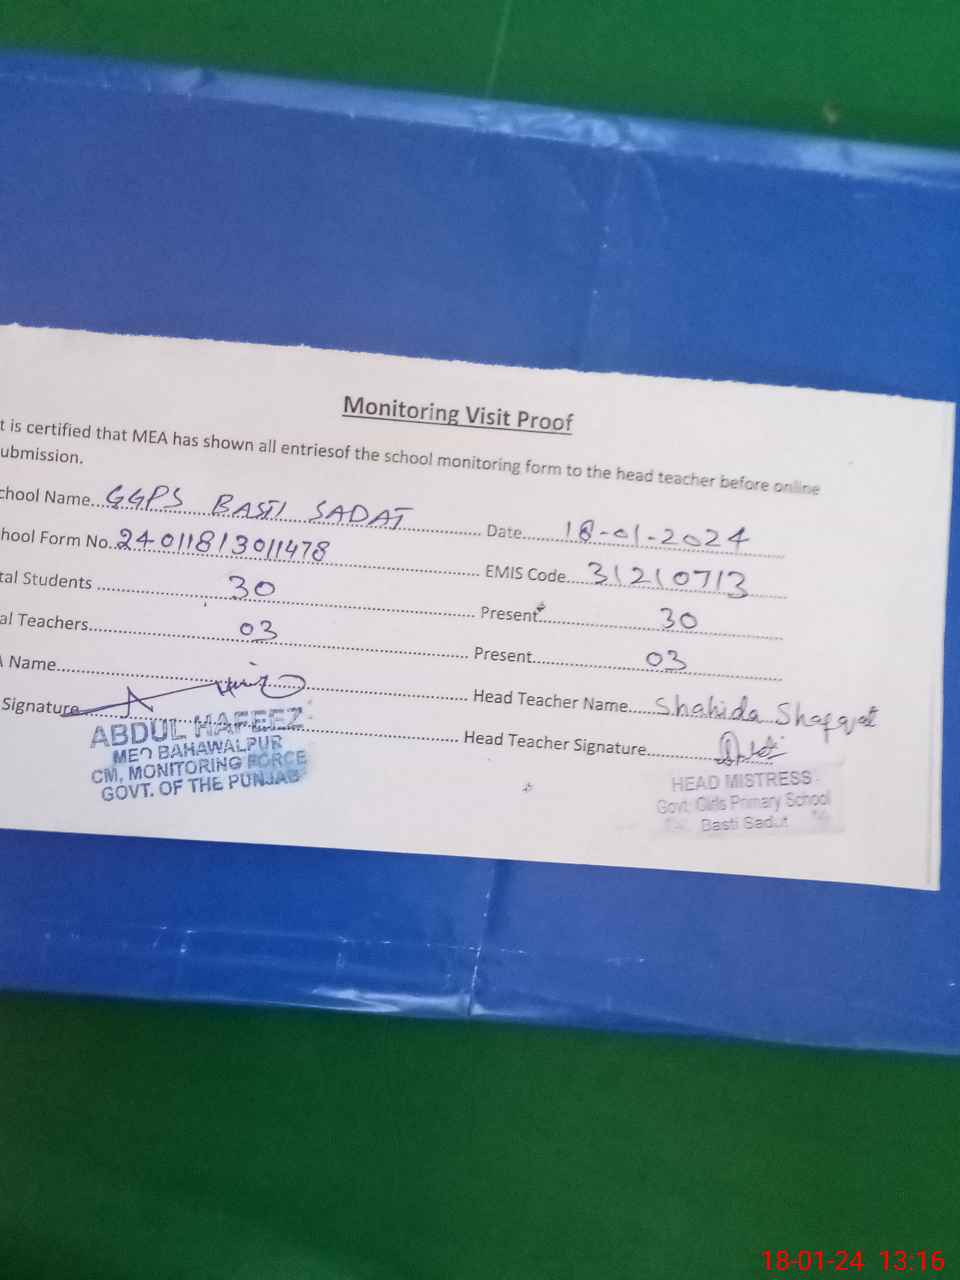 Monitoring Visit Proof
t is certified that MEA has shown all entriesof the school monitoring form to the head teacher before online
ubmission.
chool Name..GGPS BASTI SADAT Date.....18-01-2024
hool Form No..24011813011478 EMIS Code...31210713
tal Students 30 Present 30
al Teachers 03 Present 03
Name Head Teacher Name Shahida Shafqat
Signature Head Teacher Signature
ABDUL HAFEEZ
MEO BAHAWALPUR
CM, MONITORING FORCE
GOVT. OF THE PUNJAB
HEAD MISTRESS
Govt: Girls Primary School
Basti Sadat
18-01-24 13:16